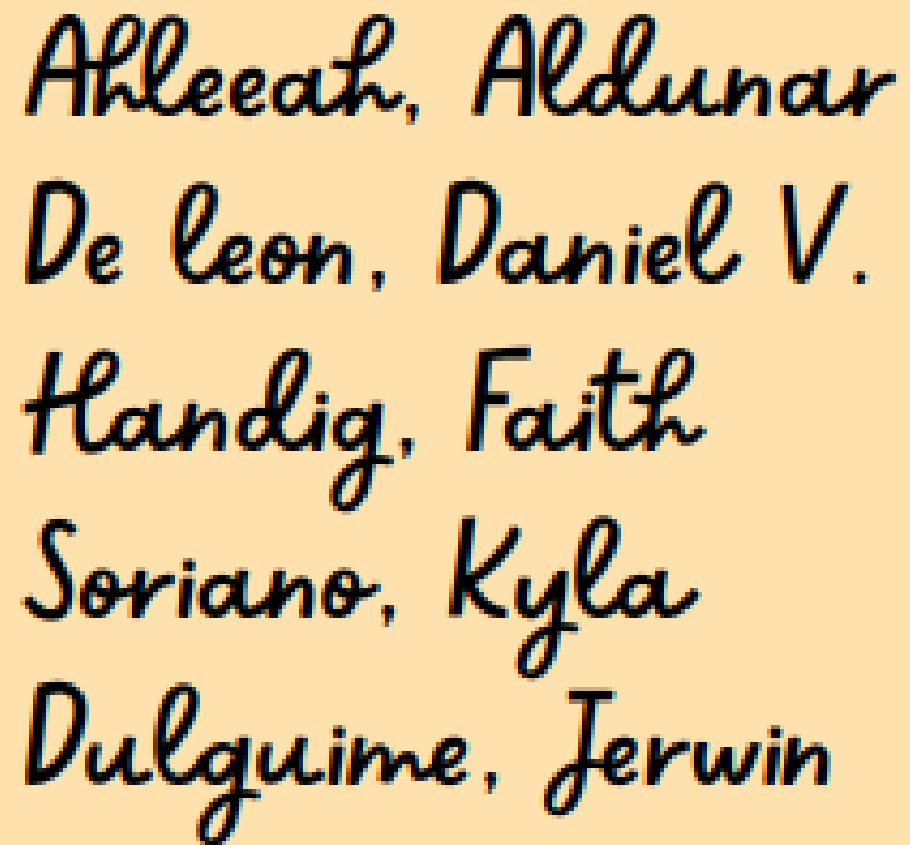 Ahleeah, Aldunar
De leon, Daniel V.
Handig, Faith
Soriano, Kyla
Dulguime, Jerwin